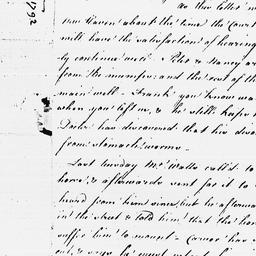 as this letter
New Haven about the time the Court
will have the satisfaction of hearing
ly continue well. Peter & Nancy are
from the mumps: and the rest of the
main well - Frank you know was
when you left us, & he still keeps
Doctor has discovered that his
from stomach worms -
Last tuesday Mr. Walls call'd to
horse, & afterwards sent for it to
heard from him since, but he afterwa
in the street & told him that the hor
suffer him to mount - Caesar has
out, & says he must
1792